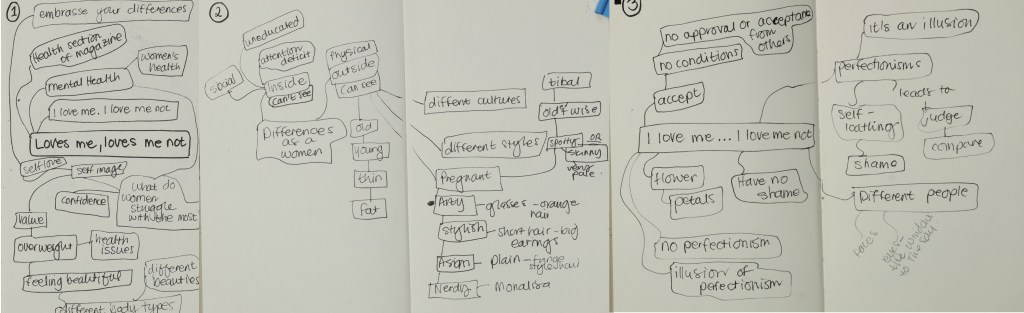 1
embrasse your differences
Health section
of magazine
women's
health
mental Health
I love me. I love me not
Loves me, loves me not
selflove
self image
what do
women
struggle
with the most
confidence
value
overweight
health
issues
feeling beautiful
different
beauties
different body types
2
uneducated
attention
deficit
social
inside
can't see
Physical
outside
can see
Differences
as a
women
old
young
thin
fat
different cultures
tibal
old & wise
different styles
sporty OR
skinny
very
pale
Pregnant
Arty - glasses - orange
hair
stylish - short hair - big
earrings
Asian - plain - fringe
style hair
Nerdy - monalisa
3
no approval or acceptance
from
others
no conditions
accept
I love me... I love me not
flower
petals
Have no
shame
no perfectionism
illusion of
perfectionism
it's an illusion
perfectionisms
leads to
self-
loathing
judge
compare
shame
Different people
faces
eyes-
the window
to the soul